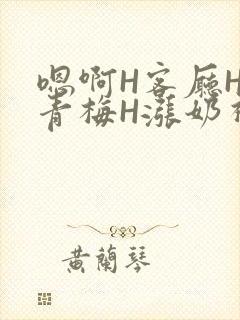 嗯啊H客厅H
青梅H涨奶
黄兰琴